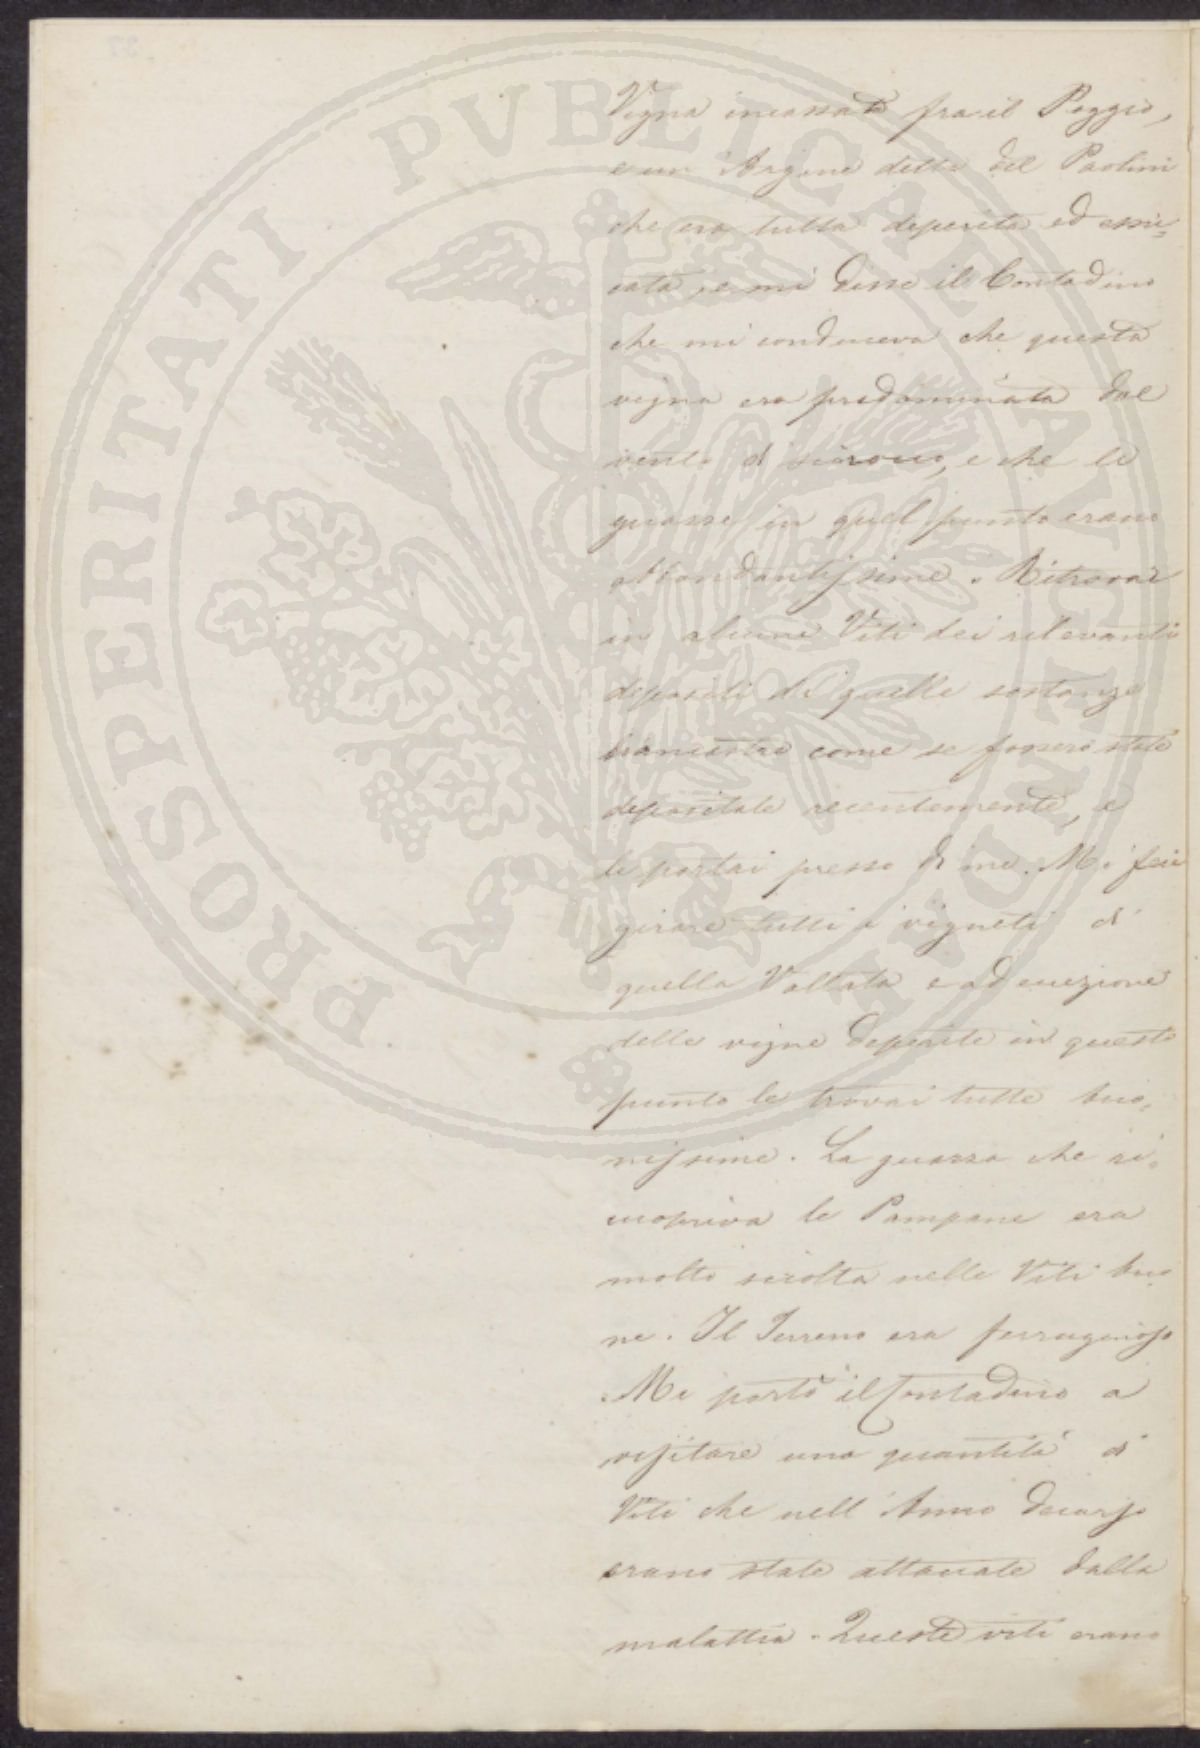 Vigna incassata fra il Poggio,
e un Argine detta del Paolini
che era tutta deperita ed essic=
cata, e mi disse il Contadino
che mi conduceva che questa
vigna era predominata dal
vento di scirocco, e che le
guasse in quel punto erano
abbondantissime. Ritrovai
in alcune Viti dei rilevanti
depositi di quelle sostanze
biancastre come se fossero state
depositate recentemente, e
le portai presso di me. Mi feci
girare tutti i vigneti di
quella Vallata e ad eccezione
delle vigne deperite in questo
punto le trovai tutte buo,
nissime. La guazza che ri,
cuopriva le Pampane era
molto sciolta nelle Viti buo
ne. Il Terreno era ferruginoso
Mi portò il Contadino a
visitare una quantità di
Viti che nell'Anno decorso
erano state attaccate dalla
malattia. Queste viti erano
PROSPERITATI PVBLICAE AVGENDAE